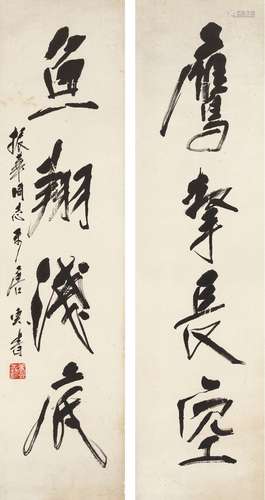 鹰击长空
鱼翔浅底
振华同志 唐云书